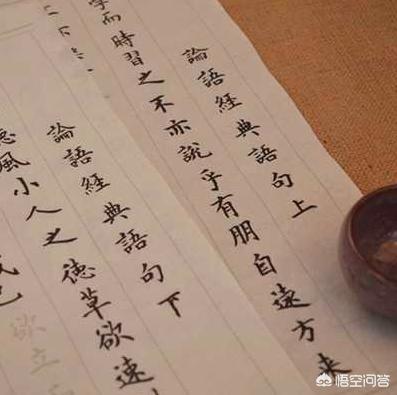 論語經典語句上
而時習之不亦說乎有朋自遠方来
論語經典語句下
風小人之德草欲速
欲立
悟空问答